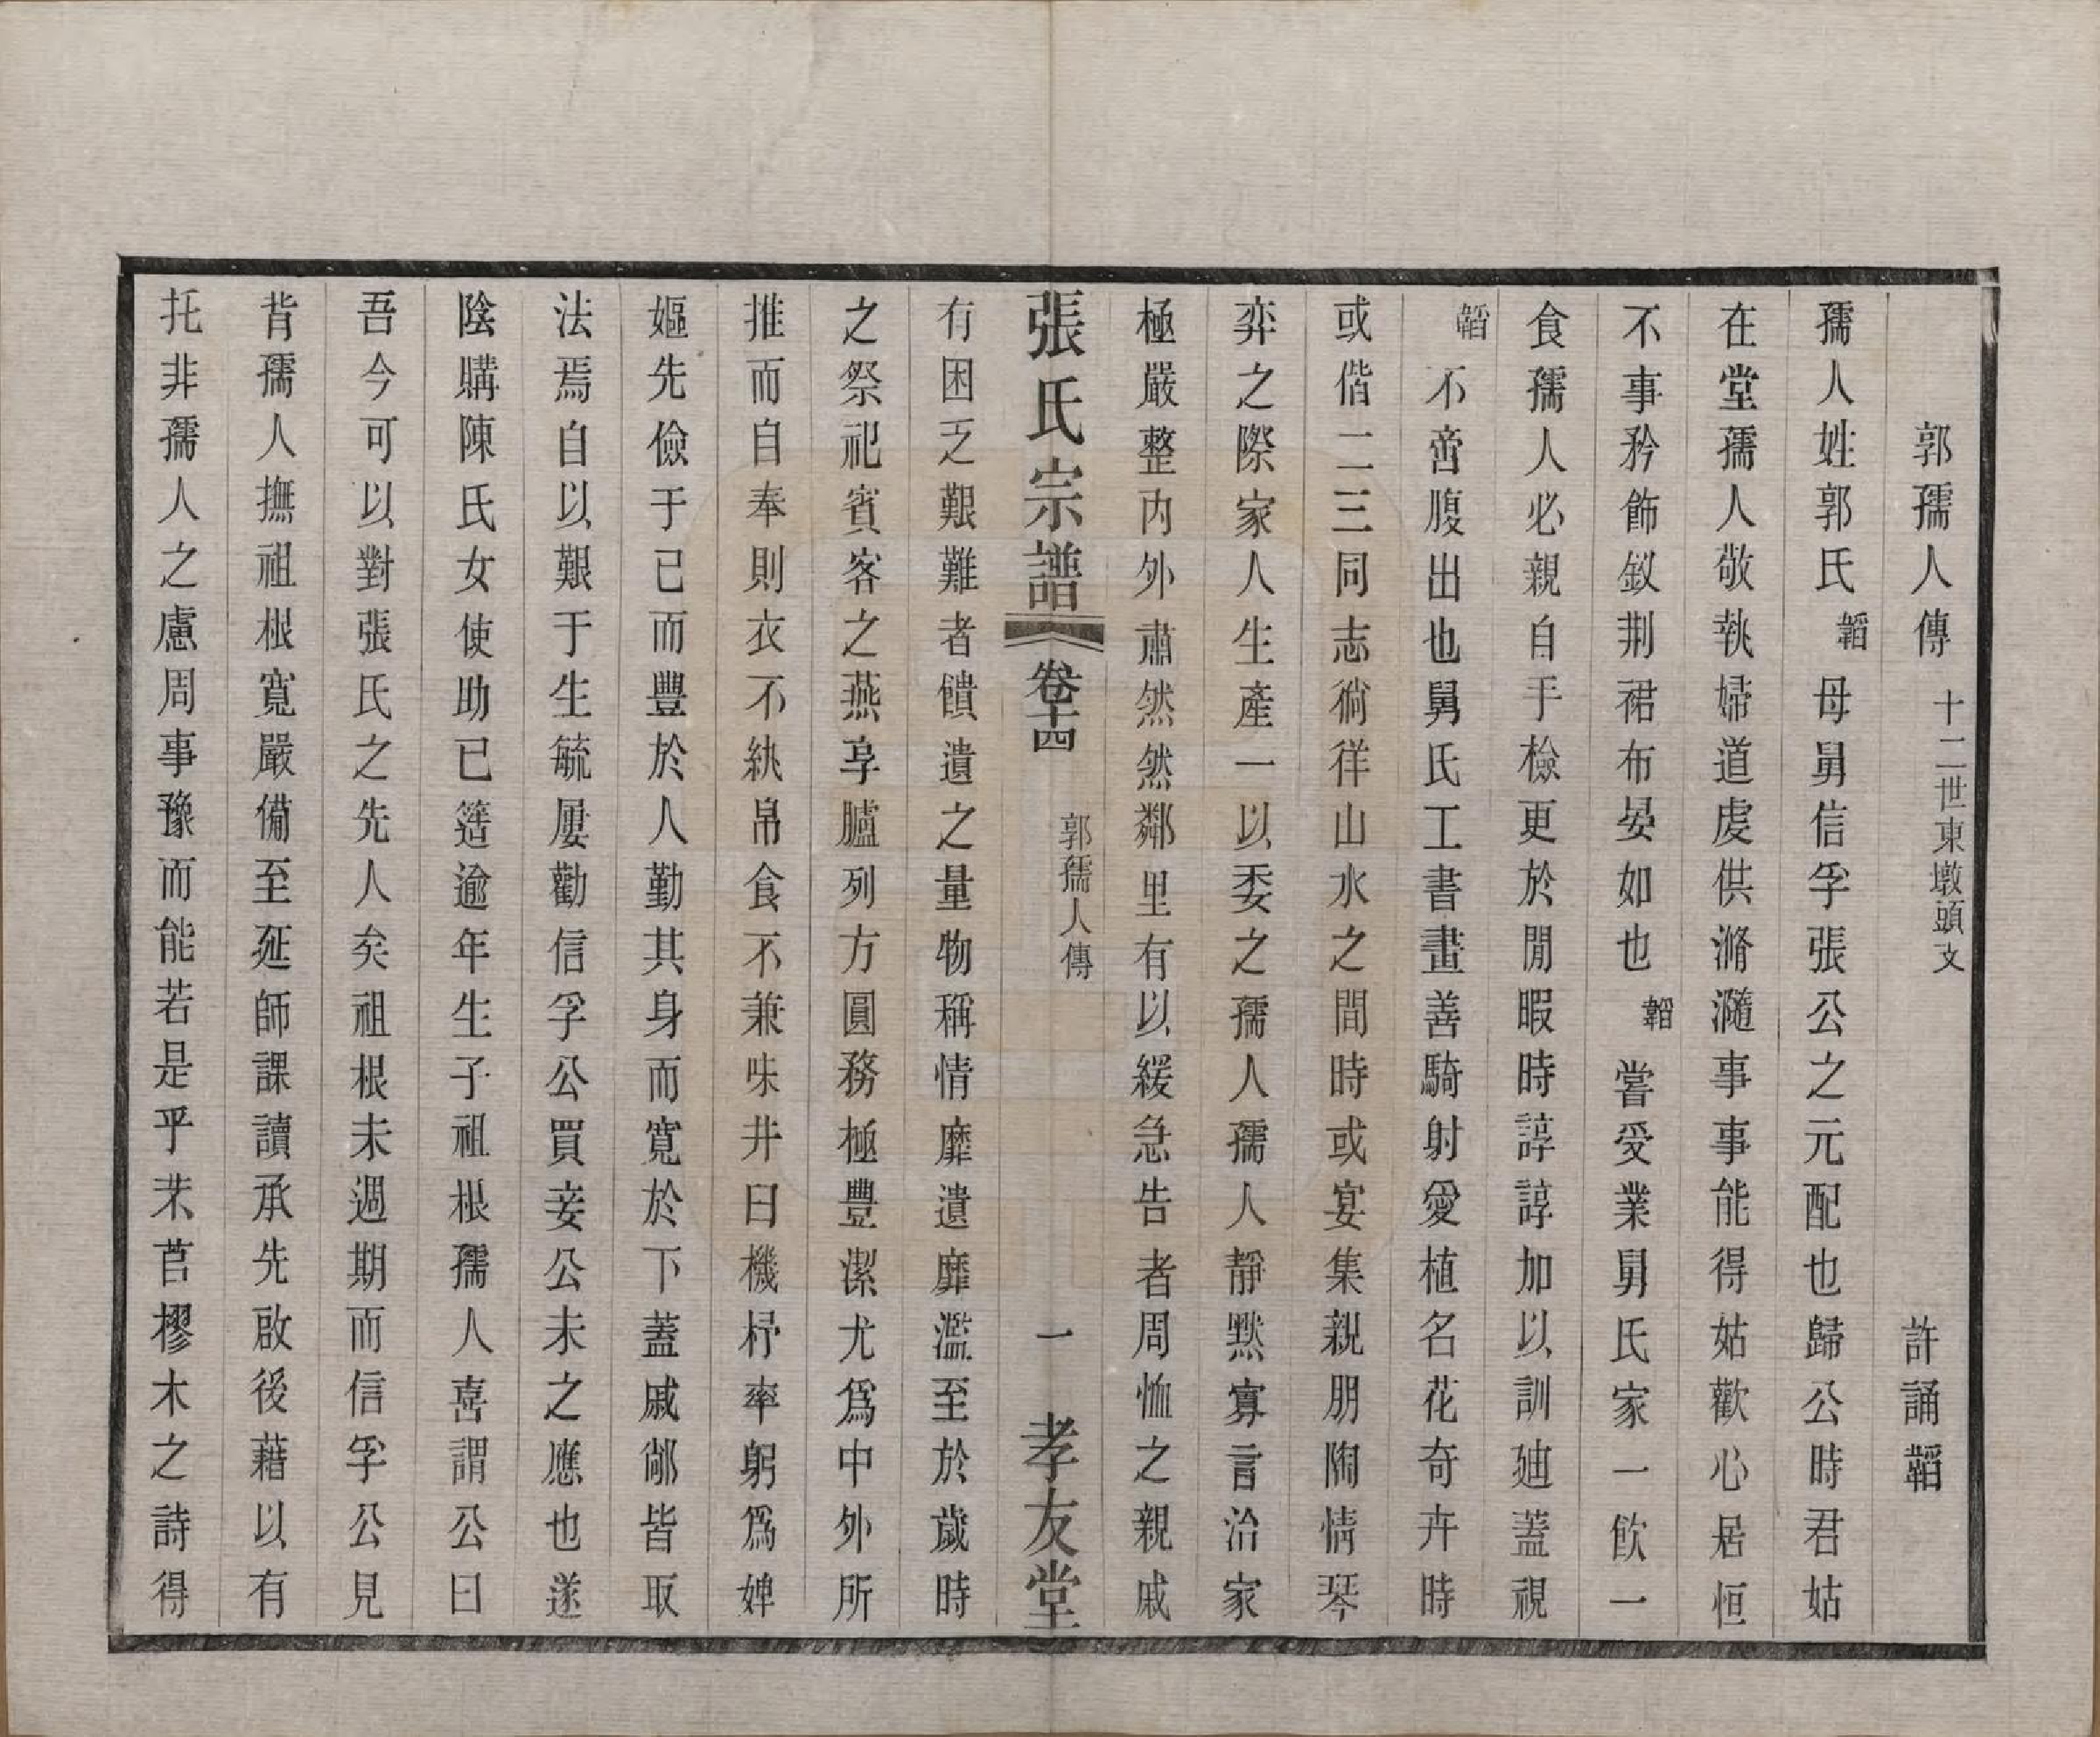 郭孺人傳 十二世東墩頭文 許誦韜
孺人姓郭氏韜母舅信孚張公之元配也歸公時君姑
在堂孺人敬執婦道虔供滫瀡事事能得姑歡心居恒
不事矜飾釵荆裙布晏如也韜嘗受業舅氏家一飲一
食孺人必親自手檢更於閒暇時諄諄加以訓廸蓋視
韜不啻腹出也舅氏工書畫善騎射愛植名花奇卉時
或偕二三同志徜徉山水之間時或宴集親朋陶情琴
弈之際家人生產一以委之孺人孺人靜默寡言治家
極嚴整內外肅然然鄰里有以緩急告者周恤之親戚
張氏宗譜 卷十四 郭孺人傳 一 孝友堂
有困乏艱難者饋遺之量物稱情靡遺靡濫至於歲時
之祭祀賓客之燕享臚列方圓務極豐潔尤爲中外所
推而自奉則衣不紈帛食不兼味井臼機杼率躬爲婢
嫗先儉于已而豐於人勤其身而寬於下蓋戚鄰皆取
法焉自以艱于生毓屢勸信孚公買妾公未之應也遂
陰購陳氏女使助已簉逾年生子祖根孺人喜謂公曰
吾今可以對張氏之先人矣祖根未週期而信孚公見
背孺人撫祖根寬嚴備至延師課讀承先啟後藉以有
托非孺人之慮周事豫而能若是乎芣苢樛木之詩得